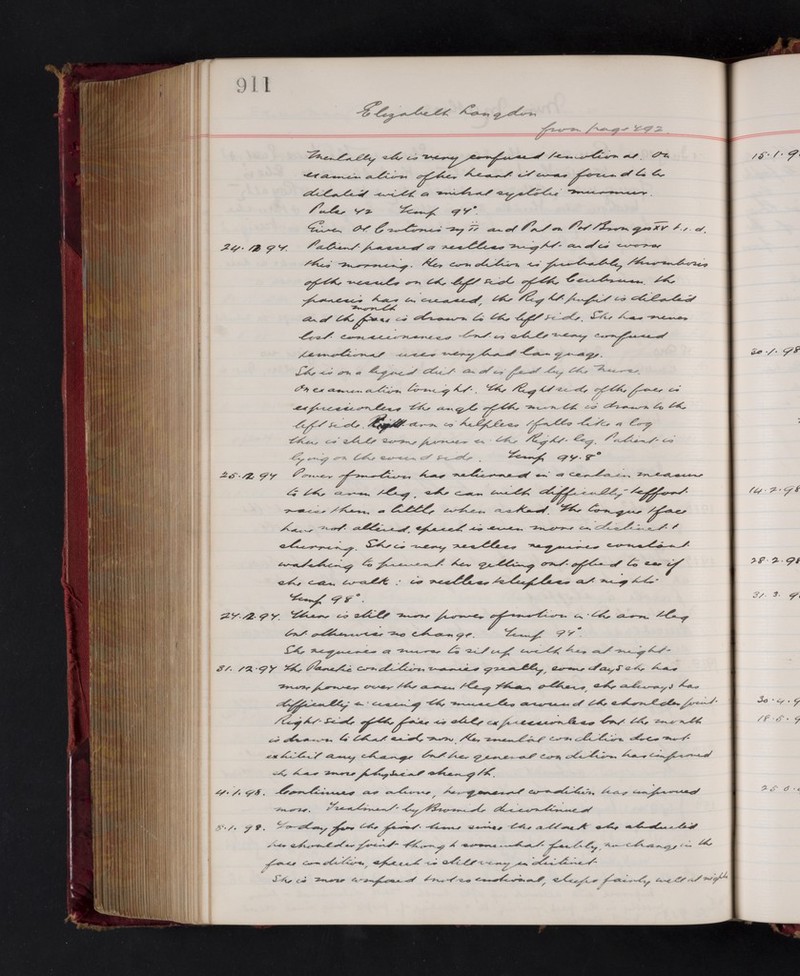 911
Elizabeth Langdon
from page 492
Mentally she is very confused & emotional. On
examination of her heart it was found to be
dilated with a mitral systolic murmur.
Pulse 42 Temp 97°
Given Ol Crotonis and Pot Brom gr XV t.i.d.
24.12.97. Patient passed a restless night and is worse
this morning. Her condition is probably thrombosis
of the vessels on the left side of the Cerebrum. The
paresis has increased, the Right pupil is dilated
mouth
and the face is drawn to the left side. She has never
lost consciousness but is still very confused
& emotional & uses very bad language.
She is on a liquid diet and is fed by the nurse.
On examination tonight. The Right side of the face is
expressionless the angle of the mouth is drawn to the
left side. Right arm is helpless & falls like a log
there is still some power in the Right leg. Patient is
lying on the sound side. Temp 97.8°
25.12.97 Power of motion has returned in a certain measure
to the arm & leg, she can with difficulty & effort
raise them a little when asked. The tongue & face
have not altered, speech is even more indistinct &
slurring. She is very restless & requires constant
watching to prevent her getting out of bed to see if
she can walk: is restless & sleepless at night.
Temp 98°.
27.12.97. There is still more power of motion in the arm & leg
but otherwise no change. Temp 97°
She requires a nurse to sit up with her at night.
31.12.97 The Paretic condition varies greatly, some days she has
more power over the arm & leg than others, she always has
difficulty in using the muscles around the shoulder joint.
Right side of the face is still expressionless but the mouth
is drawn to that side now. Her mental condition does not
exhibit any change but her general condition has improved
she has more physical strength.
4.1.98. Continues as above, her general condition has improved
more. Treatment by Bromide discontinued
8.1.98. Today for the first time since the attack she abducted
her shoulder joint though somewhat feebly, no change in the
face condition, speech is still very indistinct
She is more composed & not so emotional, sleeps fairly well at night
15.1.9
20.1.98
14.2.98
28.2.98
31.3.9
30.4.9
18.5.9
25.6.